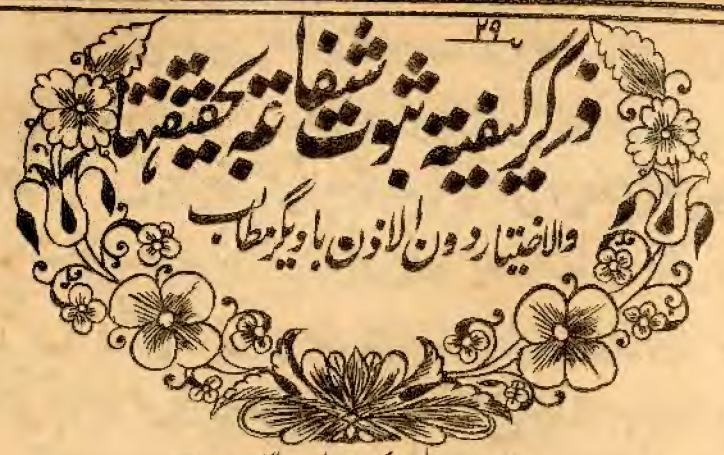 ۲۹
ذکر کیفیتہ ثبوت شفاعتہ بحقیقتہا
والاختیار دون الاذن با دیگر مطالب